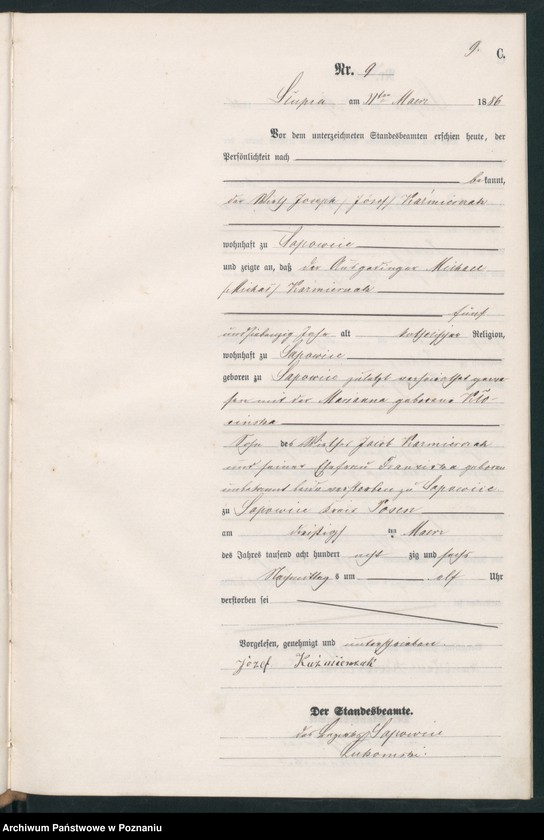 9. C.
Nr. 9
Słupia am 31ten Maerz 1886
Vor dem unterzeichneten Standesbeamten erschien heute, der
Persönlichkeit nach
bekannt,
der Wirth Joseph /Józef/ Kaźmierczak
wohnhaft zu Sapowice
und zeigte an, daß der Ausgedinger Michael
/Michał/ Kaźmierczak
fünf
undsiebenzig Jahr alt katholischer Religion,
wohnhaft zu Sapowice
geboren zu Sapowice zuletzt verheirathet gewe
sen mit der Maryana geborene
Sohn des Wirthes Jacob Kazmierczak
und seiner Ehefrau Franziska geborene
unbekannt beide verstorben zu Sapowice
zu Sapowice Kreis Posen
am dreißigsten Maerz
des Jahres tausend acht hundert acht zig und sechs
Nachmittag s um elf Uhr
verstorben sei
Vorgelesen, genehmigt und unterschrieben
Józef Kaźmierczak
Der Standesbeamte.
des Bezirks Sapowice
Łukomski
Archiwum Państwowe w Poznaniu